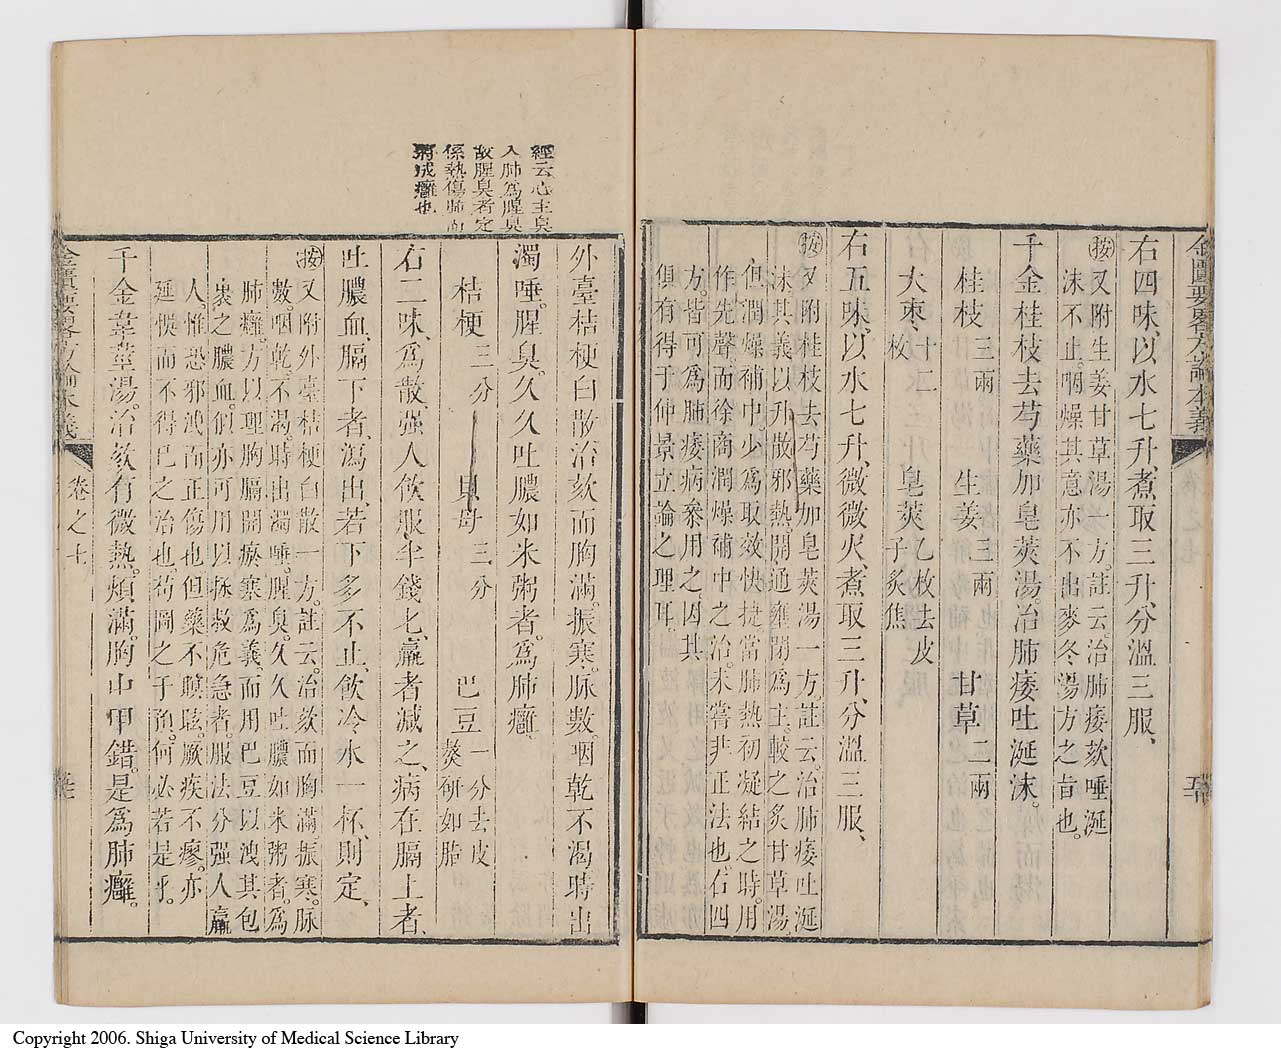 金匱要畧方論本義
右四味、以水七升、煮取三升、分溫三服、
按又附生姜甘草湯一方。註云治肺痿欬唾涎
沫不止。咽燥其意亦不出麥冬湯方之旨也。
千金桂枝去芍藥加皂莢湯治肺痿吐涎沫。
桂枝三兩 生姜三兩 甘草二兩
大棗十二枚 皂莢乙枚去皮子炙焦
右五味、以水七升、微微火、煮取三升、分溫三服、
按又附桂枝去芍藥加皂莢湯一方。註云。治肺痿吐涎
沫其義以升散邪熱。開通壅閉爲主。較之炙甘草湯、
但潤燥補中。少爲取效快捷當肺熱初凝結之時。用
作先聲而徐商潤燥補中之治。未嘗非正法也。右四
方。皆可爲肺痿病叅用之。因其
俱有得于仲景立論之理耳。
經云心主臭
入肺爲腥臭
故腥臭者定
係熱傷肺而
成癰也
外臺桔梗白散治欬而胸滿。振寒。脉數。咽乾不渴。時出
濁唾。腥臭、久久吐膿如米粥者。爲肺癰
桔梗三分 貝母三分 巴豆一分去皮熬研如脂
右二味、爲散、强人飲服半錢匕、羸者減之、病在膈上者、
吐膿血、膈下者、瀉出、若下多不止、飲冷水一杯、則定、
按又附外臺桔梗白散一方。註云。治欬而胸滿振寒。脉
數。咽乾。不渴。時出濁唾。腥臭。久久吐膿如米粥者。爲
肺癰。方以理胸膈開瘀寒爲義。而用巴豆以洩其包
裹之膿血。似亦可用以拯救危急者。服法分强人羸
人。惟恐邪洩而正傷也。但藥不瞑眩。厥疾不瘳。亦
延悞而不得已之治也。苟圖之于預。何必若是乎。
千金葦莖湯。治欬有微熱。煩滿。胸中甲錯。是爲肺癰。
金匱要畧方論本義 卷之七